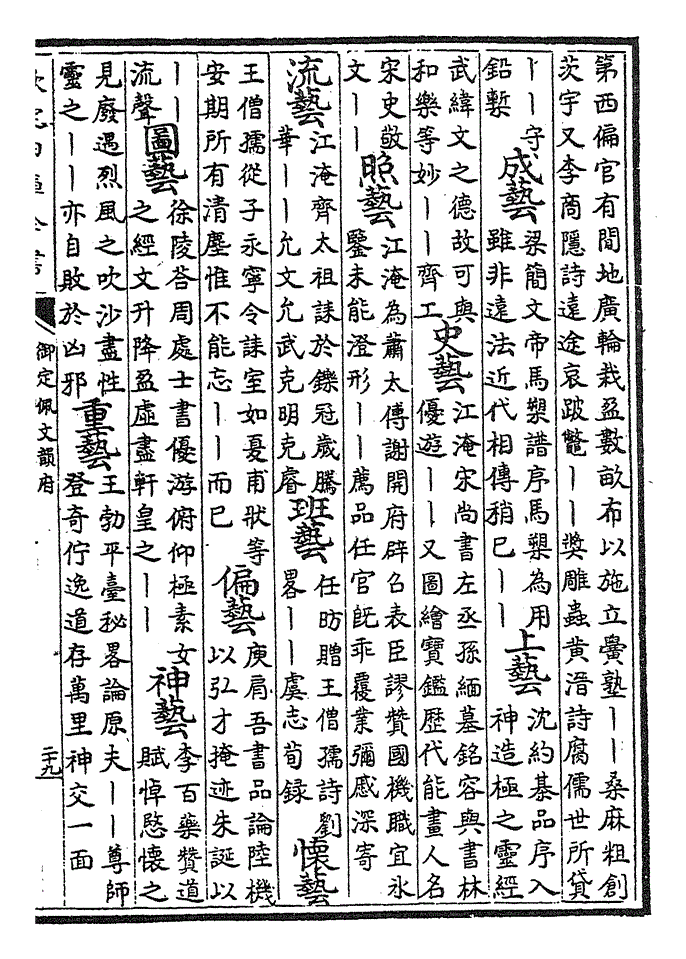 第西偏官有閒地廣輪栽盈數畝布以施立黌塾丨丨桑麻粗創
茨宇又李商隱詩遠途哀跛鼈丨丨獎雕蟲黄溍詩腐儒世所貸
丨丨守
鉛槧
成藝
梁簡文帝馬槊譜序馬槊為用
雖非遠法近代相傳稍已丨丨
上藝
沈約棊品序入
神造極之靈經
武緯文之德故可與
和樂等妙丨丨齊工
史藝
江淹宋尚書左丞孫緬墓銘容與書林
優游丨丨又圖繪寶鑑歴代能畫人名
宋史敬
文丨丨
照藝
江淹為蕭太傅謝開府辟召表臣謬贊國機職宜氷
鑒未能澄形丨丨薦品任官旣乖覆業彌慼深寄
流藝
江淹齊太祖誄於鑠冠歲騰
華丨丨允文允武克明克睿
班藝
任昉贈王僧孺詩劉
畧丨丨虞志荀録
懷藝
王僧孺從子永寧令誄室如憂甫狀等
安期所有清塵惟不能忘丨丨而已
偏藝
庾肩吾書品論陸機
以弘才掩迹朱誕以
丨丨
流聲
圖藝
徐陵荅周處士書優游俯仰極素女
之經文升降盈虛盡軒皇之丨丨
神藝
李百藥贊道
賦悼愍懷之
見廢遇烈風之吹沙盡性
靈之丨丨亦自敗於凶邪
重藝
王勃平臺秘畧論原夫丨丨尊師
登奇佇逸道存萬里神交一面
欽定四庫全書
御定佩文韻府
二十九